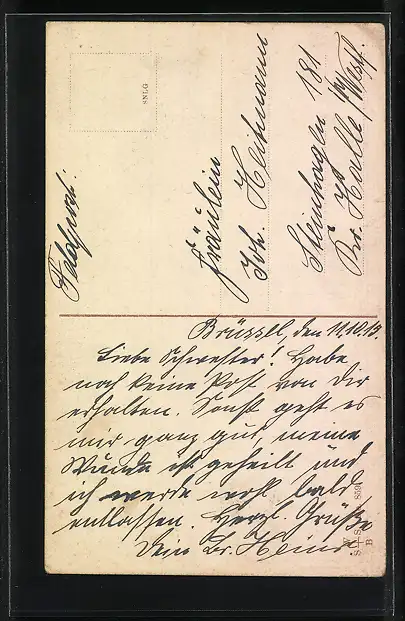 Feldpost.
SNLG
Fräulein
Joh. Heitmann
Steinhagen 181
Kr. Halle /Westf.
Brüssel, den 11.10.19.
Liebe Schwester! Habe
noch keine Post von Dir
erhalten. Sonst geht es
mir ganz gut, meine
Wunde ist geheilt und
ich werde wohl bald
entlassen. Herzl. Grüße
Dein Br. Heinr.